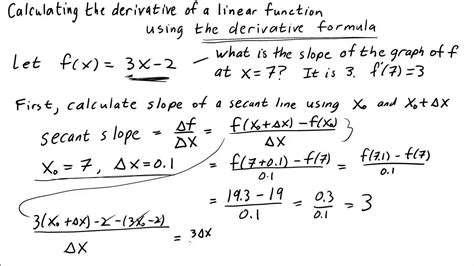 Calculating the derivative of a linear function
using the derivative formula
Let f(x) = 3x-2 – what is the slope of the graph of f
at x=7? It is 3. f'(7)=3
First, calculate slope of a secant line using X₀ and X₀+Δx
secant slope = Δf/ΔX = (f(X₀+Δx)-f(X₀))/ΔX
X₀ = 7, Δx=0.1 = (f(7+0.1)-f(7))/0.1 = (f(7.1)-f(7))/0.1
= (19.3-19)/0.1 = 0.3/0.1 = 3
(3(X₀+Δx)-2-(3X₀-2))/ΔX = 3ΔX